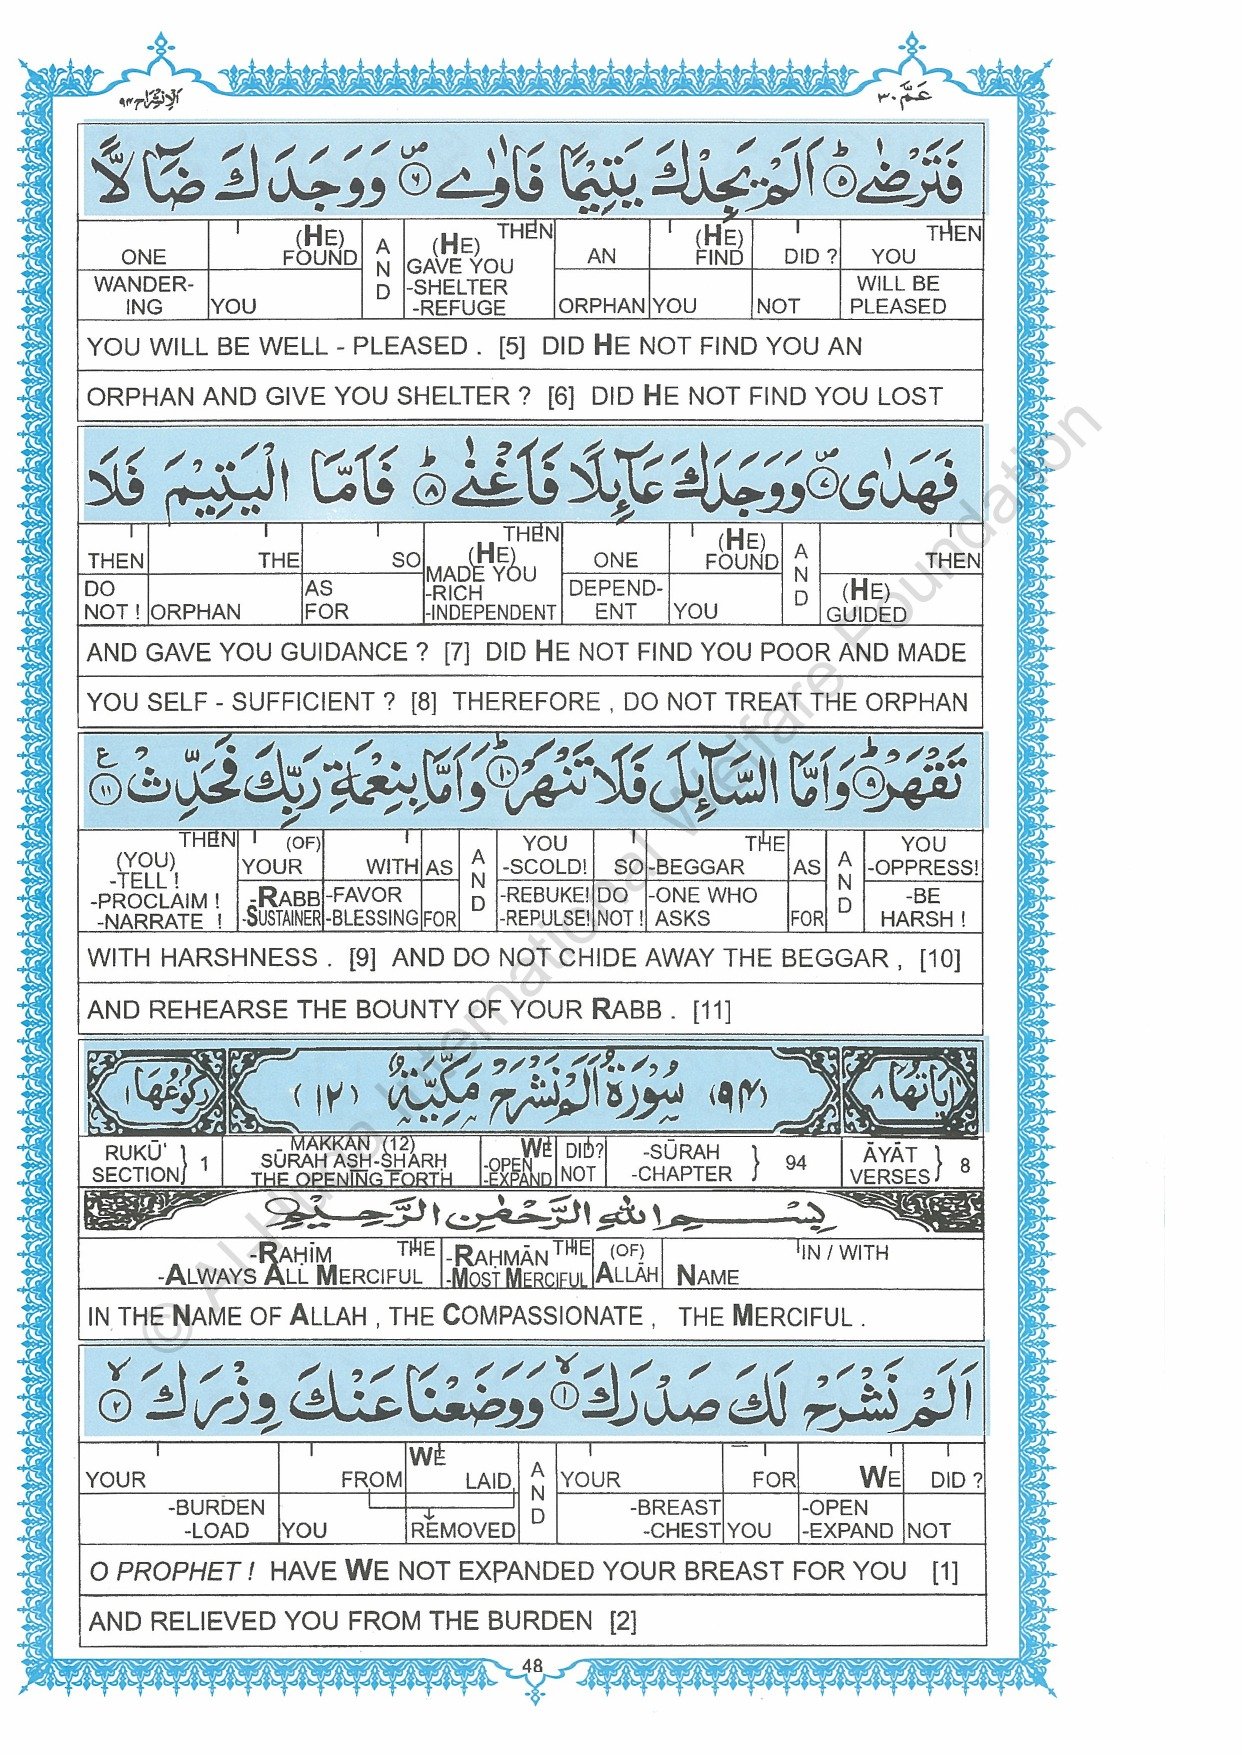 عَمَّ ٣٠
الإنشراح ٩٤
فَتَرْضٰىؕ ٥ اَلَمْ يَجِدْكَ يَتِيْمًا فَاٰوٰى۪ ٦ وَوَجَدَكَ ضَآلًّا
ONE WANDER-ING | (HE) FOUND YOU | AND | THEN (HE) GAVE YOU -SHELTER -REFUGE | AN ORPHAN | (HE) FIND YOU | DID ? NOT | THEN YOU WILL BE PLEASED
YOU WILL BE WELL - PLEASED . [5] DID HE NOT FIND YOU AN
ORPHAN AND GIVE YOU SHELTER ? [6] DID HE NOT FIND YOU LOST
فَهَدٰى۪ ٧ وَوَجَدَكَ عَآئِلًا فَاَغْنٰىؕ ٨ فَاَمَّا الْيَتِيْمَ فَلَا
THEN DO NOT ! | THE ORPHAN | SO AS FOR | THEN (HE) MADE YOU -RICH -INDEPENDENT | ONE DEPEND-ENT | (HE) FOUND YOU | AND | THEN (HE) GUIDED
AND GAVE YOU GUIDANCE ? [7] DID HE NOT FIND YOU POOR AND MADE
YOU SELF - SUFFICIENT ? [8] THEREFORE , DO NOT TREAT THE ORPHAN
تَقْهَرْؕ ٩ وَاَمَّا السَّآئِلَ فَلَا تَنْهَرْؕ ١٠ وَاَمَّا بِنِعْمَةِ رَبِّكَ فَحَدِّثْ ١١ ع
THEN (YOU) -TELL ! -PROCLAIM ! -NARRATE ! | (OF) YOUR -RABB -SUSTAINER | WITH -FAVOR -BLESSING | AS FOR | AND | YOU -SCOLD! -REBUKE! -REPULSE! | SO DO NOT ! | THE -BEGGAR -ONE WHO ASKS | AS FOR | AND | YOU -OPPRESS! -BE HARSH !
WITH HARSHNESS . [9] AND DO NOT CHIDE AWAY THE BEGGAR , [10]
AND REHEARSE THE BOUNTY OF YOUR RABB . [11]
اٰيَاتُهَا ٨ (٩٤) سُوْرَةُ اَلَمْ نَشْرَحْ مَكِّيَّةٌ (١٢) رُكُوْعُهَا ١
RUKŪ' SECTION } 1 | MAKKAN (12) SŪRAH ASH-SHARH THE OPENING FORTH | WE -OPEN -EXPAND | DID? NOT | -SŪRAH -CHAPTER } 94 | ĀYĀT VERSES } 8
بِسْمِ اللهِ الرَّحْمٰنِ الرَّحِيْمِ
THE -RAHĪM -ALWAYS ALL MERCIFUL | THE -RAHMĀN -MOST MERCIFUL | (OF) ALLĀH | NAME | IN / WITH
IN THE NAME OF ALLAH , THE COMPASSIONATE , THE MERCIFUL .
اَلَمْ نَشْرَحْ لَكَ صَدْرَكَ ١ وَوَضَعْنَا عَنْكَ وِزْرَكَ ٢
YOUR -BURDEN -LOAD | FROM YOU | WE LAID REMOVED | AND | YOUR -BREAST -CHEST | FOR YOU | WE -OPEN -EXPAND | DID ? NOT
O PROPHET ! HAVE WE NOT EXPANDED YOUR BREAST FOR YOU [1]
AND RELIEVED YOU FROM THE BURDEN [2]
48
© Al-Huda International Welfare Foundation